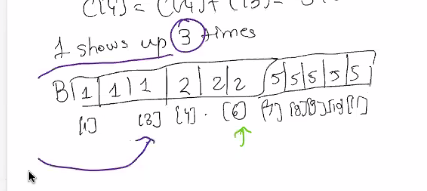 C[4] = C[4] + C[3] =
1 shows up 3 times
B 1 1 1 2 2 2 5 5 5 5 5
[1] [3] [4] . [6] [7] [8] [9] [10] [11]